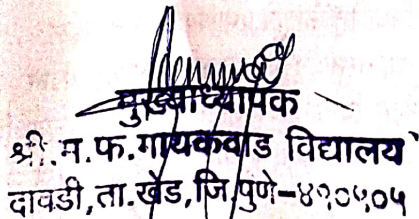 मुख्याध्यापक
श्री. म. फ. गायकवाड विद्यालय
दावडी, ता. खेड, जि. पुणे-४१०५०५